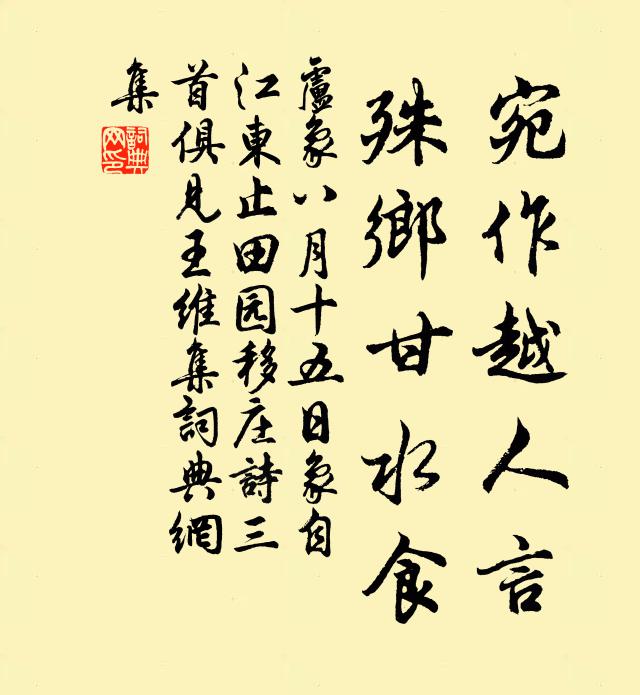 宛作越人言
殊鄉甘水食
盧象八月十五日象自
江東止田园移庄詩三
首俱見王維集詞典網
集
詞典
网印